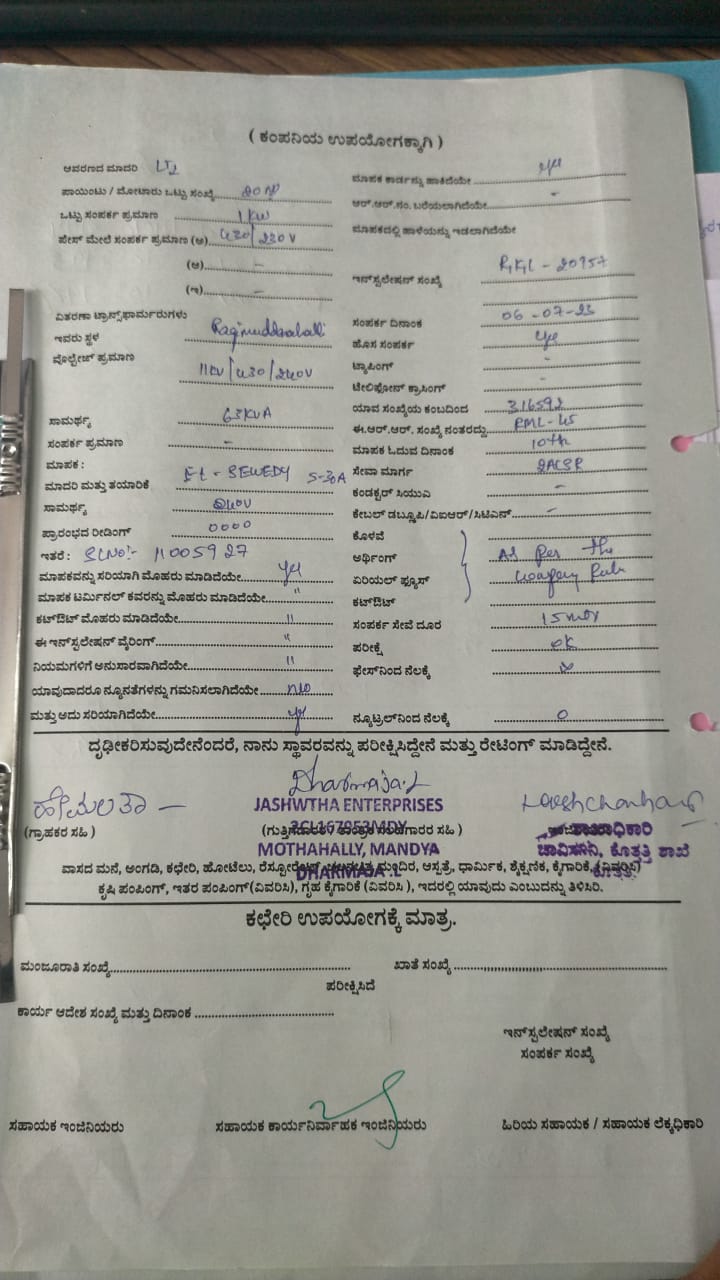 ( ಕಂಪನಿಯ ಉಪಯೋಗಕ್ಕಾಗಿ )
ಆವರಣದ ಮಾದರಿ LT2
ಮಾಪಕ ಕಾರ್ಡನ್ನು ಹಾಕಿದೆಯೇ yes
ಪಾಯಿಂಟು / ಮೋಟಾರು ಒಟ್ಟು ಸಂಖ್ಯೆ
ಆರ್.ಆರ್.ನಂ. ಬರೆಯಲಾಗಿದೆಯೇ -
ಒಟ್ಟು ಸಂಪರ್ಕ ಪ್ರಮಾಣ 1 KW
ಮಾಪಕದಲ್ಲಿ ಹಾಳೆಯನ್ನು ಇಡಲಾಗಿದೆಯೇ
ಪೇಸ್ ಮೇಲೆ ಸಂಪರ್ಕ ಪ್ರಮಾಣ (ಅ) 430/230 V
(ಆ) -
ಇನ್‌ಸ್ಟಲೇಷನ್ ಸಂಖ್ಯೆ RGL - 20957
(ಇ) -
ವಿತರಣಾ ಟ್ರಾನ್ಸ್‌ಫಾರ್ಮರುಗಳು
ಸಂಪರ್ಕ ದಿನಾಂಕ 06-07-23
ಇವರು ಸ್ಥಳ
ಹೊಸ ಸಂಪರ್ಕ yes
ವೋಲ್ಟೇಜ್ ಪ್ರಮಾಣ 11KV/430/240V
ಟ್ಯಾಪಿಂಗ್ -
ಟೆಲಿಫೋನ್ ಕ್ರಾಸಿಂಗ್ -
ಸಾಮರ್ಥ್ಯ 63KVA
ಯಾವ ಸಂಖ್ಯೆಯ ಕಂಬದಿಂದ 316592
ಸಂಪರ್ಕ ಪ್ರಮಾಣ -
ಈ.ಆರ್.ಆರ್. ಸಂಖ್ಯೆ ನಂತರದ್ದು RML-45
ಮಾಪಕ :
ಮಾಪಕ ಓದುವ ದಿನಾಂಕ 10th
ಮಾದರಿ ಮತ್ತು ತಯಾರಿಕೆ 5-30A
ಸೇವಾ ಮಾರ್ಗ
ಸಾಮರ್ಥ್ಯ 240V
ಕಂಡಕ್ಟರ್ ಸಿಯುಎ -
ಪ್ರಾರಂಭದ ರೀಡಿಂಗ್ 0000
ಕೇಬಲ್ ಡಬ್ಲ್ಯೂಪಿ/ವಿಐಆರ್/ಸಿಟಿಎನ್ -
ಇತರೆ : SLNO:- 11005927
ಕೊಳವೆ
ಮಾಪಕವನ್ನು ಸರಿಯಾಗಿ ಮೊಹರು ಮಾಡಿದೆಯೇ yes
ಅರ್ಥಿಂಗ್ As Per the
ಮಾಪಕ ಟರ್ಮಿನಲ್ ಕವರನ್ನು ಮೊಹರು ಮಾಡಿದೆಯೇ "
ಏರಿಯಲ್ ಫ್ಯೂಸ್ Company Rule
ಕಟ್‌ಔಟ್ ಮೊಹರು ಮಾಡಿದೆಯೇ "
ಕಟ್‌ಔಟ್
ಈ ಇನ್‌ಸ್ಟಲೇಷನ್ ವೈರಿಂಗ್ "
ಸಂಪರ್ಕ ಸೇವೆ ದೂರ
ನಿಯಮಗಳಿಗೆ ಅನುಸಾರವಾಗಿದೆಯೇ "
ಪರೀಕ್ಷೆ OK
ಯಾವುದಾದರೂ ನ್ಯೂನತೆಗಳನ್ನು ಗಮನಿಸಲಾಗಿದೆಯೇ no
ಫೇಸ್‌ನಿಂದ ನೆಲಕ್ಕೆ
ಮತ್ತು ಅದು ಸರಿಯಾಗಿದೆಯೇ yes
ನ್ಯೂಟ್ರಲ್‌ನಿಂದ ನೆಲಕ್ಕೆ 0
ದೃಢೀಕರಿಸುವುದೇನೆಂದರೆ, ನಾನು ಸ್ಥಾವರವನ್ನು ಪರೀಕ್ಷಿಸಿದ್ದೇನೆ ಮತ್ತು ರೇಟಿಂಗ್ ಮಾಡಿದ್ದೇನೆ.
ಹೇಮಲತಾ Dharmaja.L
JASHWTHA ENTERPRISES
(ಗ್ರಾಹಕರ ಸಹಿ )
3CL167953MDY
MOTHAHALLY, MANDYA
DHARMAJA .L
ಶಾಖಾಧಿಕಾರಿ
ಚಾವಿಸನಿ, ಕೊತ್ತತ್ತಿ ಶಾಖೆ
ವಾಸದ ಮನೆ, ಅಂಗಡಿ, ಕಛೇರಿ, ಹೋಟೆಲು, ಮಂದಿರ, ಆಸ್ಪತ್ರೆ, ಧಾರ್ಮಿಕ, ಶೈಕ್ಷಣಿಕ, ಕೈಗಾರಿಕೆ,
ಕೃಷಿ ಪಂಪಿಂಗ್, ಇತರ ಪಂಪಿಂಗ್(ವಿವರಿಸಿ), ಗೃಹ ಕೈಗಾರಿಕೆ (ವಿವರಿಸಿ ), ಇದರಲ್ಲಿ ಯಾವುದು ಎಂಬುದನ್ನು ತಿಳಿಸಿರಿ.
ಕಛೇರಿ ಉಪಯೋಗಕ್ಕೆ ಮಾತ್ರ.
ಮಂಜೂರಾತಿ ಸಂಖ್ಯೆ
ಖಾತೆ ಸಂಖ್ಯೆ
ಪರೀಕ್ಷಿಸಿದೆ
ಕಾರ್ಯ ಆದೇಶ ಸಂಖ್ಯೆ ಮತ್ತು ದಿನಾಂಕ
ಇನ್‌ಸ್ಟಲೇಷನ್ ಸಂಖ್ಯೆ
ಸಂಪರ್ಕ ಸಂಖ್ಯೆ
ಸಹಾಯಕ ಇಂಜಿನಿಯರು
ಸಹಾಯಕ ಕಾರ್ಯನಿರ್ವಾಹಕ ಇಂಜಿನಿಯರು
ಹಿರಿಯ ಸಹಾಯಕ / ಸಹಾಯಕ ಲೆಕ್ಕಧಿಕಾರಿ